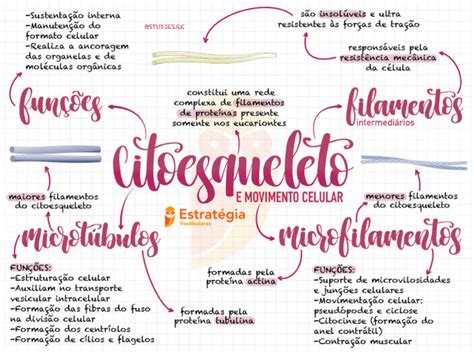 -Sustentação interna
-Manutenção do
formato celular
-Realiza a ancoragem
das organelas e de
moléculas orgânicas
@STUDIES.RE
são insolúveis e ultra
resistentes às forças de tração
responsáveis pela
resistência mecânica
da célula
funções
constitui uma rede
complexa de filamentos
de proteínas presente
somente nos eucariontes
filamentos
intermediários
citoesqueleto
E MOVIMENTO CELULAR
Estratégia
Vestibulares
maiores filamentos
do citoesqueleto
menores filamentos
do citoesqueleto
microtúbulos
microfilamentos
FUNÇÕES:
-Estruturação celular
-Auxiliam no transporte
vesicular intracelular
-Formação das fibras do fuso
na divisão celular
-Formação dos centríolos
-Formação de cílios e flagelos
formadas pela
proteína actina
formadas pela
proteína tubulina
FUNÇÕES:
-Suporte de microvilosidades
e junções celulares
-Movimentação celular:
pseudópodes e ciclose
-Citocinese (formação do
anel contrátil)
-Contração muscular